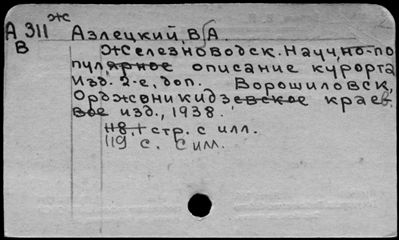 ж
А 311 Азлецкий, В. А.
В Железноводск. Научно-по
пулярное описание курорта
Изд. 2-е, доп. Ворошиловск,
Орджоникидзевское краев.
вое изд., 1938.
118.1 стр. с илл.
119 с. с илл.